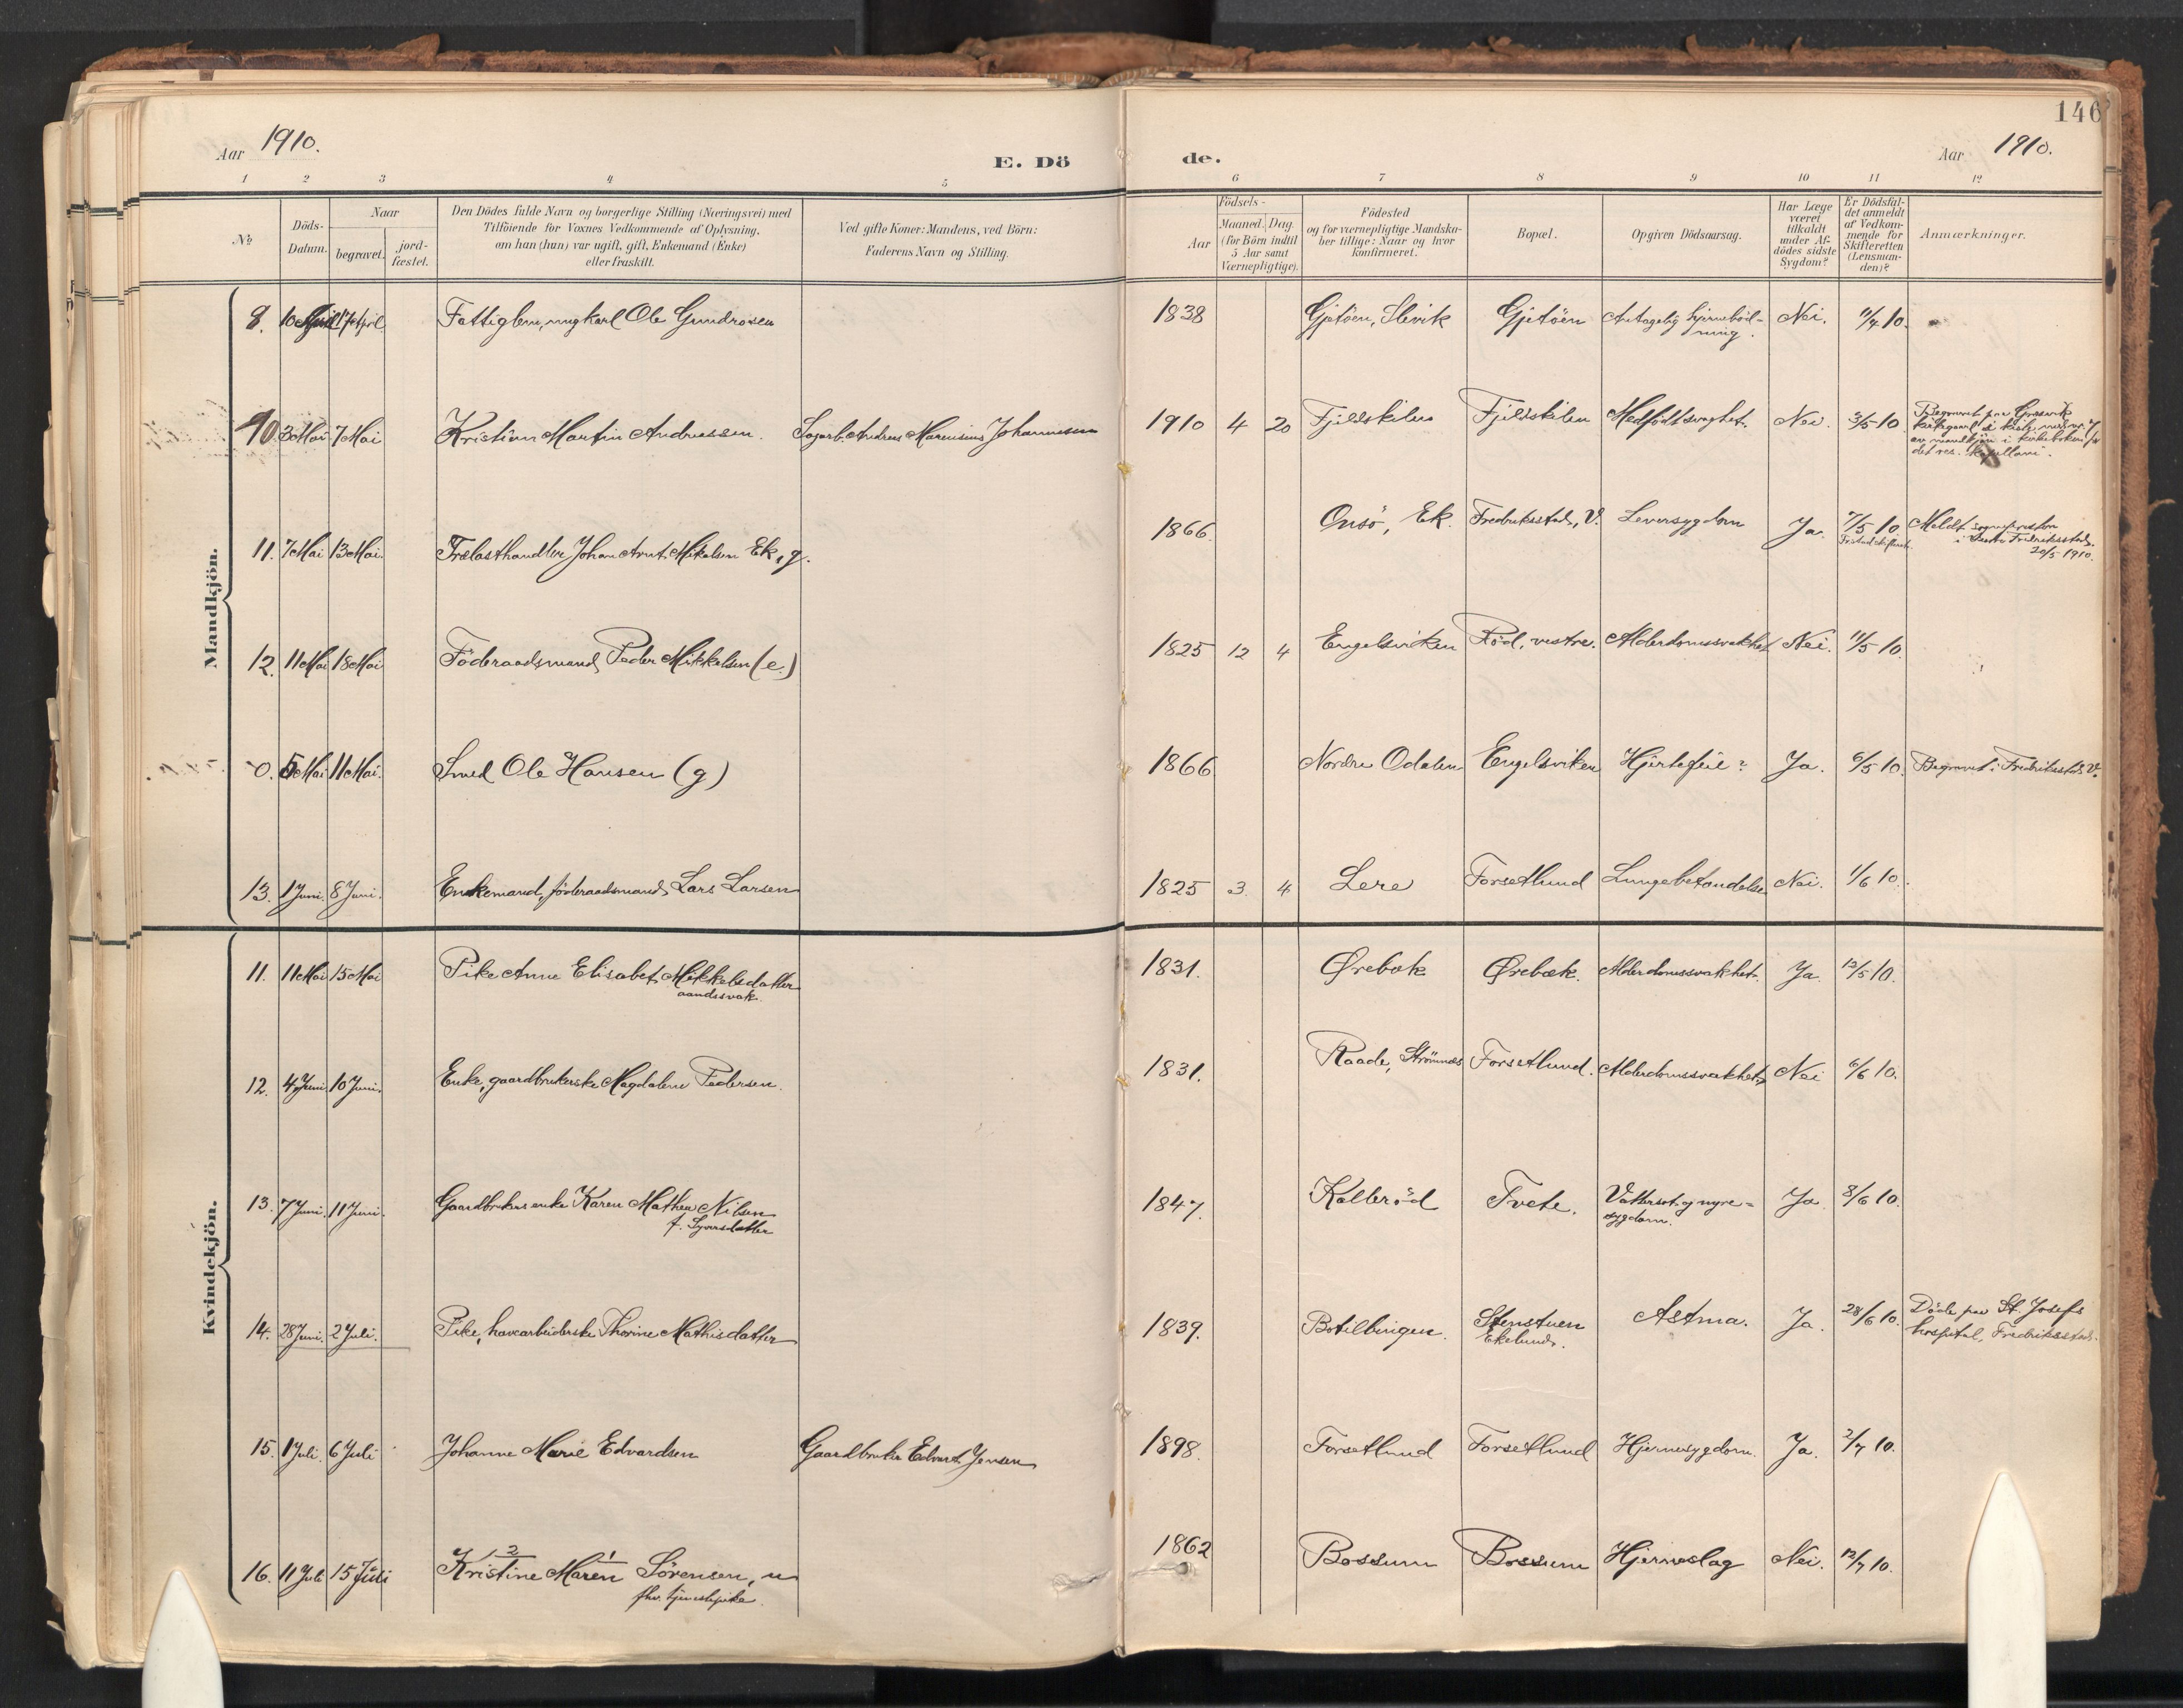 146
Aar 1910.
E. Dö de.
Aar 1910.
1 2 3 4 5 6 7 8 9 10 11 12
№
Döds-
Datum.
Naar
begravet.
jord-
fæstet.
Den Dödes fulde Navn og borgerlige Stilling (Næringsvei) med
Tilföiende for Voxnes Vedkommende af Oplysning,
om han (hun) var ugift, gift, Enkemand (Enke)
eller fraskilt.
Ved gifte Koner: Mandens, ved Börn:
Faderens Navn og Stilling.
Födsels-
Aar
Maaned. Dag.
(for Börn indtil
5 Aar samt
Værnepligtige).
Födested
og for værnepligtige Mandska-
ber tillige: Naar og hvor
konfirmeret.
Bopæl.
Opgiven Dödsaarsag.
Har Læge
været
tilkaldt
under Af-
dödes sidste
Sygdom?
Er Dödsfal-
det anmeldt
af Vedkom-
mende for
Skifteretten
(Lensman-
den)?
Anmærkninger.
Mandkjön.
8. 10 April 17 April Fattiglem, ungkarl Ole Gundrosen 1838 Gjetöen, Slevik Gjetöen Antagelig hjerneblöd- Nei. 11/4 10.
ning.
10 3 Mai 7 Mai Kristian Martin Andreassen. Sagarb. Andreas Marensius Johannesen 1910 4 20 Fjeldskilen Fjeldskilen Medfödt svaghet. Nei. 3/5 10 Begravet paa Gressvik
kirkegaard
av mandkjön i kirkeboken for
det res. kapellani.
11. 7 Mai 13 Mai. Trælasthandler Johan Arnt Mikalsen Ek, g. 1866. Onsö, Ek. Fredriksstad, V. Leversygdom Ja. 7/5 10 Meldt sognepresten
i Fredriksstad.
20/5 1910.
12. 11 Mai 18 Mai Föderaadsmand Peder Mikkelsen (e.) 1825 12 4 Engelsviken Röd, vestre. Alderdomssvakhet Nei. 11/5 10.
0. 5 Mai 11 Mai. Smed Ole Hansen (g) 1866. Nordre Odalen Engelsviken Hjertefeil? Ja. 6/5 10. Begravet i Fredriksstad V.
13. 1 Juni. 8 Juni. Enkemand, föderaadsmand Lars Larsen 1825 3. 4 Lere Forsetlund Lungebetændelse Nei. 1/6 10.
Kvindekjön.
11. 11 Mai 15 Mai Pike Anne Elisabet Mikkelsdatter 1831. Ørebæk Ørebæk. Alderdomssvakhet. Ja. 12/5 10.
aandssvak.
12. 4 Juni 10 Juni. Enke, gaardbrukerske Magdalene Pedersen. 1831. Raade, Strömnes Forsetlund. Alderdomssvakhet Nei 6/6 10.
13. 7 Juni. 11 Juni. Gaardbrukerenke Karen Mathea Nilsen 1847. Kalleröd Tvete. Vattersot og nyre- Ja. 8/6 10.
f. Syversdatter sygdom.
14. 28 Juni. 2 Juli. Pike, havearbeiderske Thorine Mathisdatter 1839. Botilbingen. Stenstuen Astma. Ja. 28/6 10. Döde paa St. Josefs
Ekelund. hospital, Fredriksstad.
15. 1 Juli. 6 Juli Johanne Marie Edvardsen Gaardbruker Edvart Jensen 1898. Forsetlund Forsetlund Hjernesygdom. Ja. 2/7 10.
2 1
16. 11 Juli 15 Juli Kristine Maren Sörensen, u 1862 Bossum Bossum Hjerneslag Nei. 12/7 10.
fhv. tjenestepike.